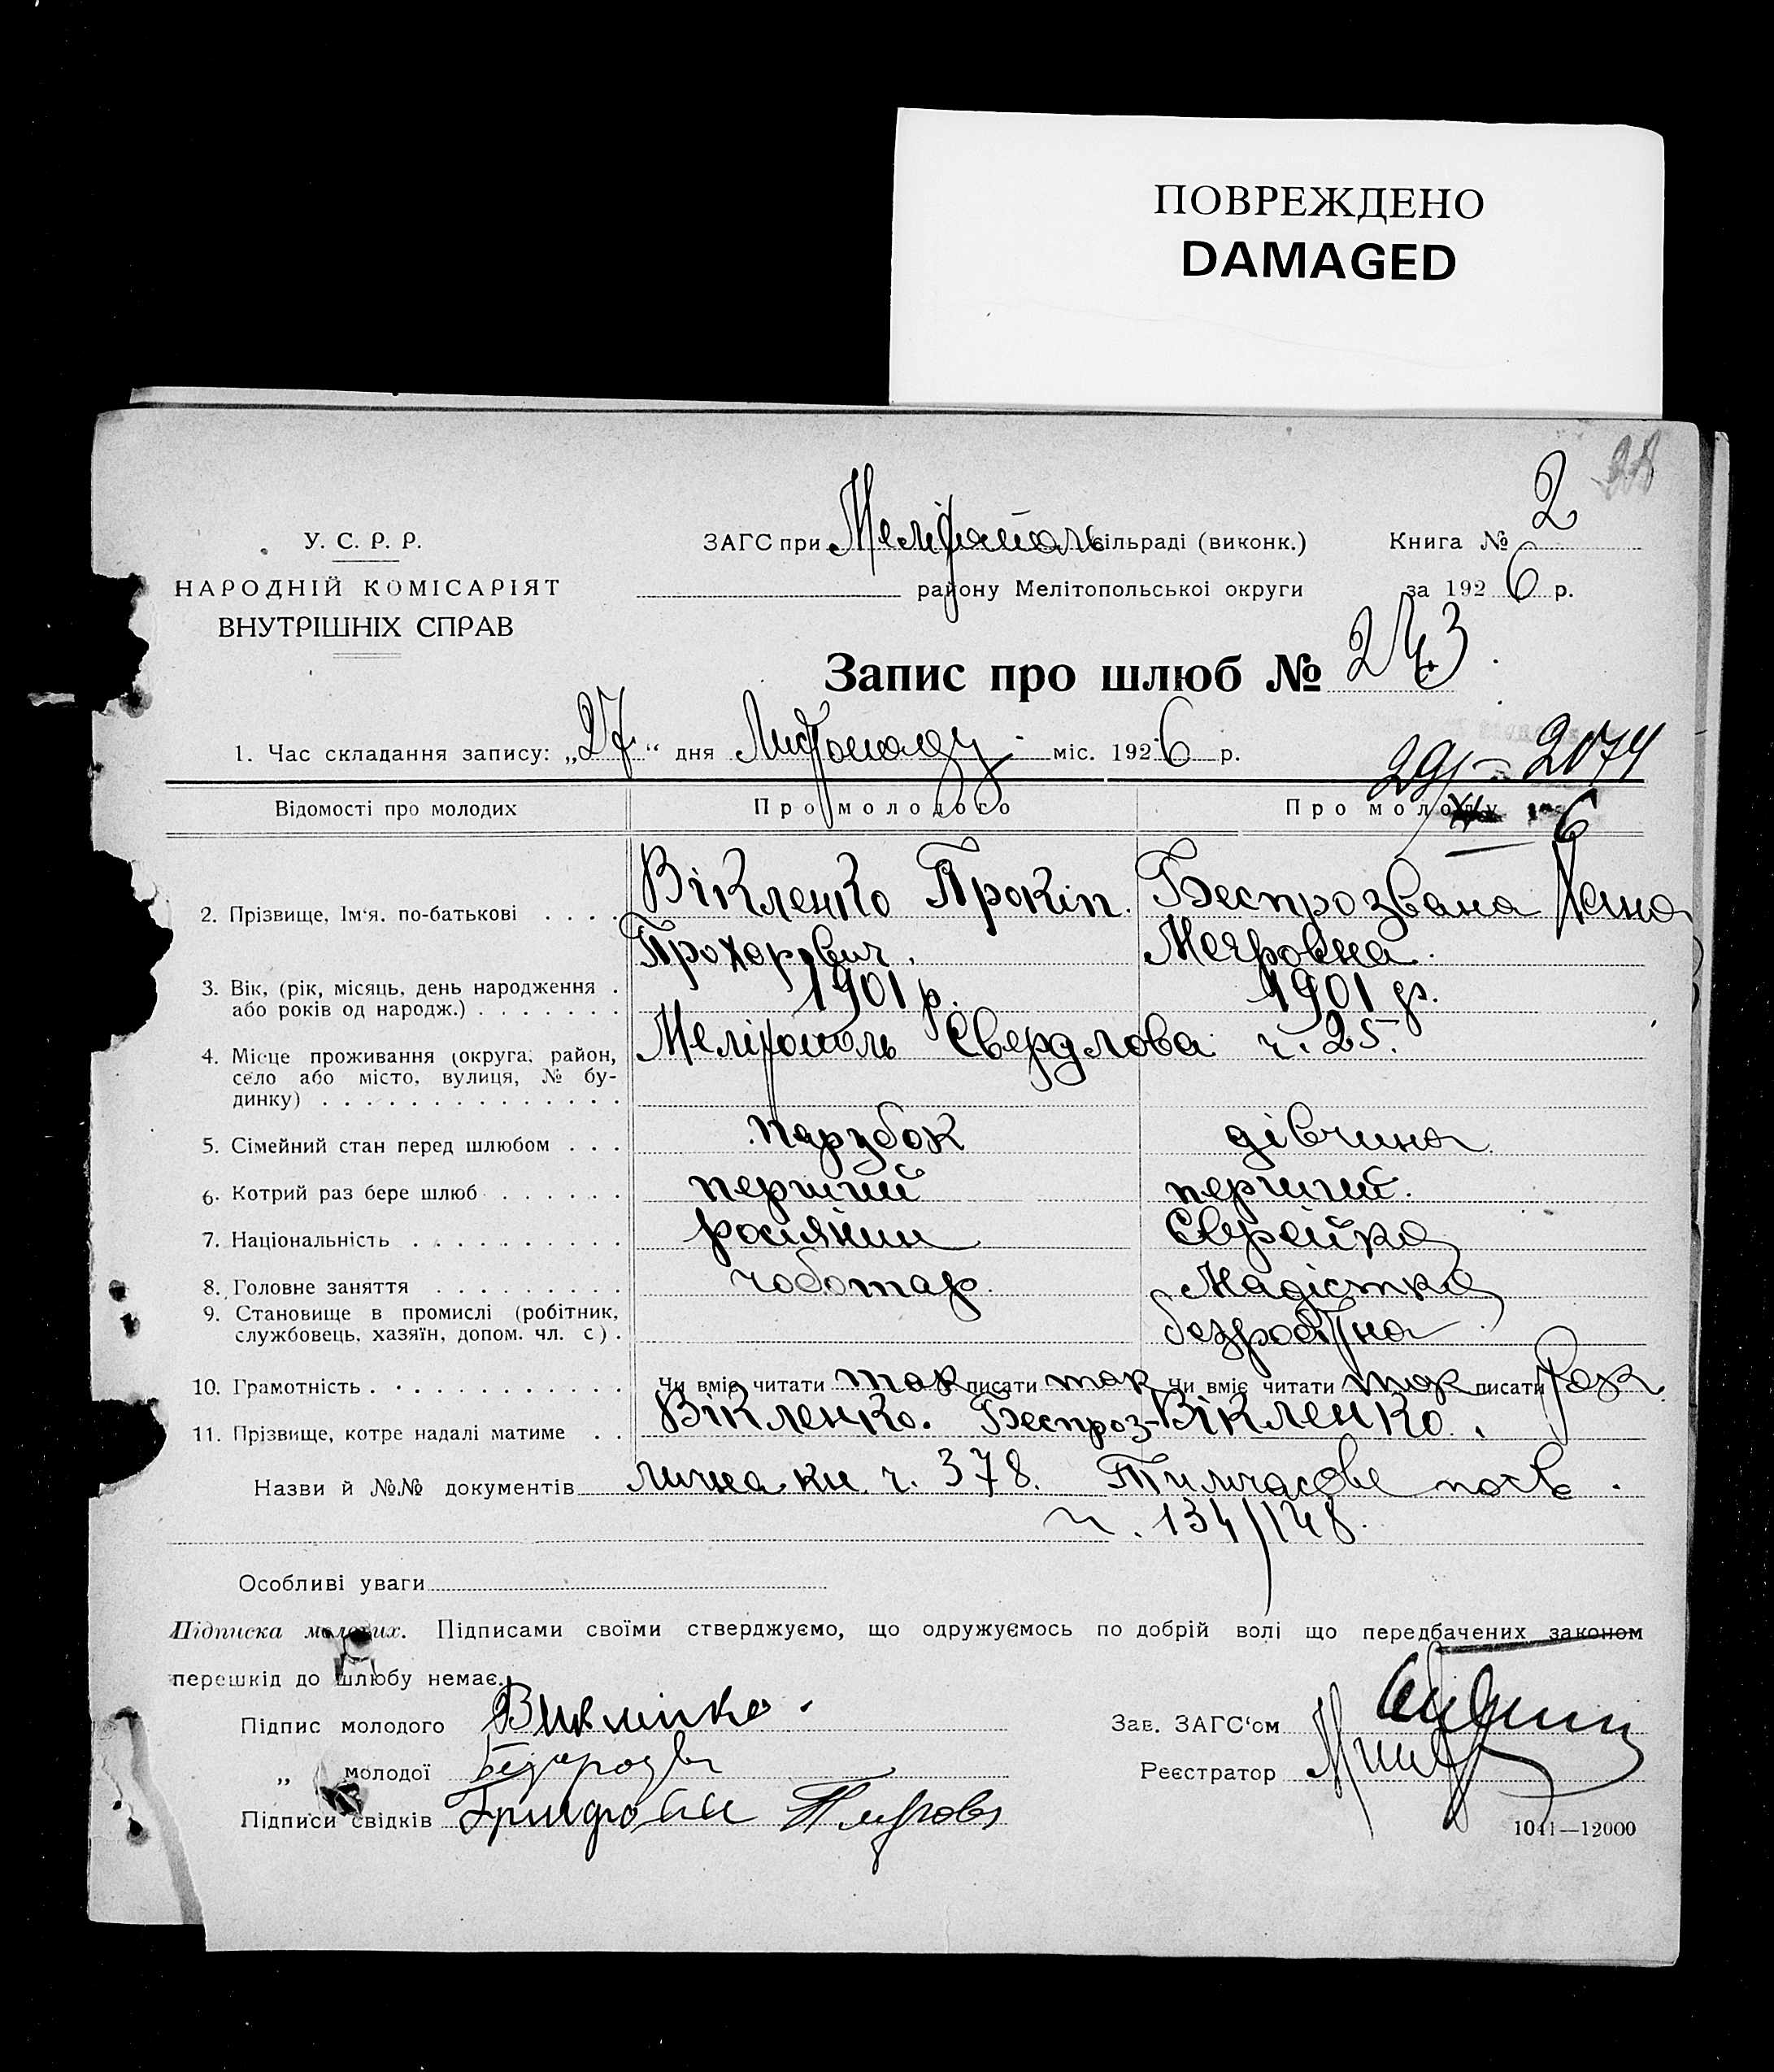 ПОВРЕЖДЕНО
DAMAGED
У. С. Р. Р.
НАРОДНІЙ КОМІСАРІЯТ
ВНУТРІШНІХ СПРАВ
ЗАГС при Мелітополь сільраді (виконк.)
району Мелітопольської округи
Книга № 2
за 1926 р.
Запис про шлюб № 243
1. Час складання запису: „27“ дня Листопаду міс. 1926 р.
29/ 2074
6
Відомості про молодих Про молодого Про молоду
2. Прізвище, Ім'я, по-батькові . . . . Вікленко Прокіп Беспрозвана Хана
Прохорович. Меєровна.
3. Вік, (рік, місяць, день народження . 1901 р. 1901 р.
або років од народж.) . . . . . . .
4. Місце проживання (округа, район, Мелітополь Свердлова ч. 25.
село або місто, вулиця, № бу-
динку) . . . . . . . . . . . . . .
5. Сімейний стан перед шлюбом . . . парубок дівчина
6. Котрий раз бере шлюб . . . . . . перший перший.
7. Національність . . . . . . . . . . росіянин Єврейка
8. Головне заняття . . . . . . . . . чоботар. Модістка
9. Становище в промислі (робітник, безробітна
службовець, хазяїн, допом. чл. с) .
10. Грамотність . . . . . . . . . . . . Чи вміє читати так писати так Чи вміє читати так писати так
11. Прізвище, котре надалі матиме . . Вікленко. Беспроз-Вікленко.
Назви й №№ документів лична кн. ч. 378. Тимчасове посв.
ч. 134/148.
Особливі уваги
Підписка молодих. Підписами своїми стверджуємо, що одружуємось по добрій волі що передбачених законом
перешкід до шлюбу немає.
Підпис молодого
Зав. ЗАГС'ом
„ молодої
Реєстратор
Підписи свідків
1041—12000